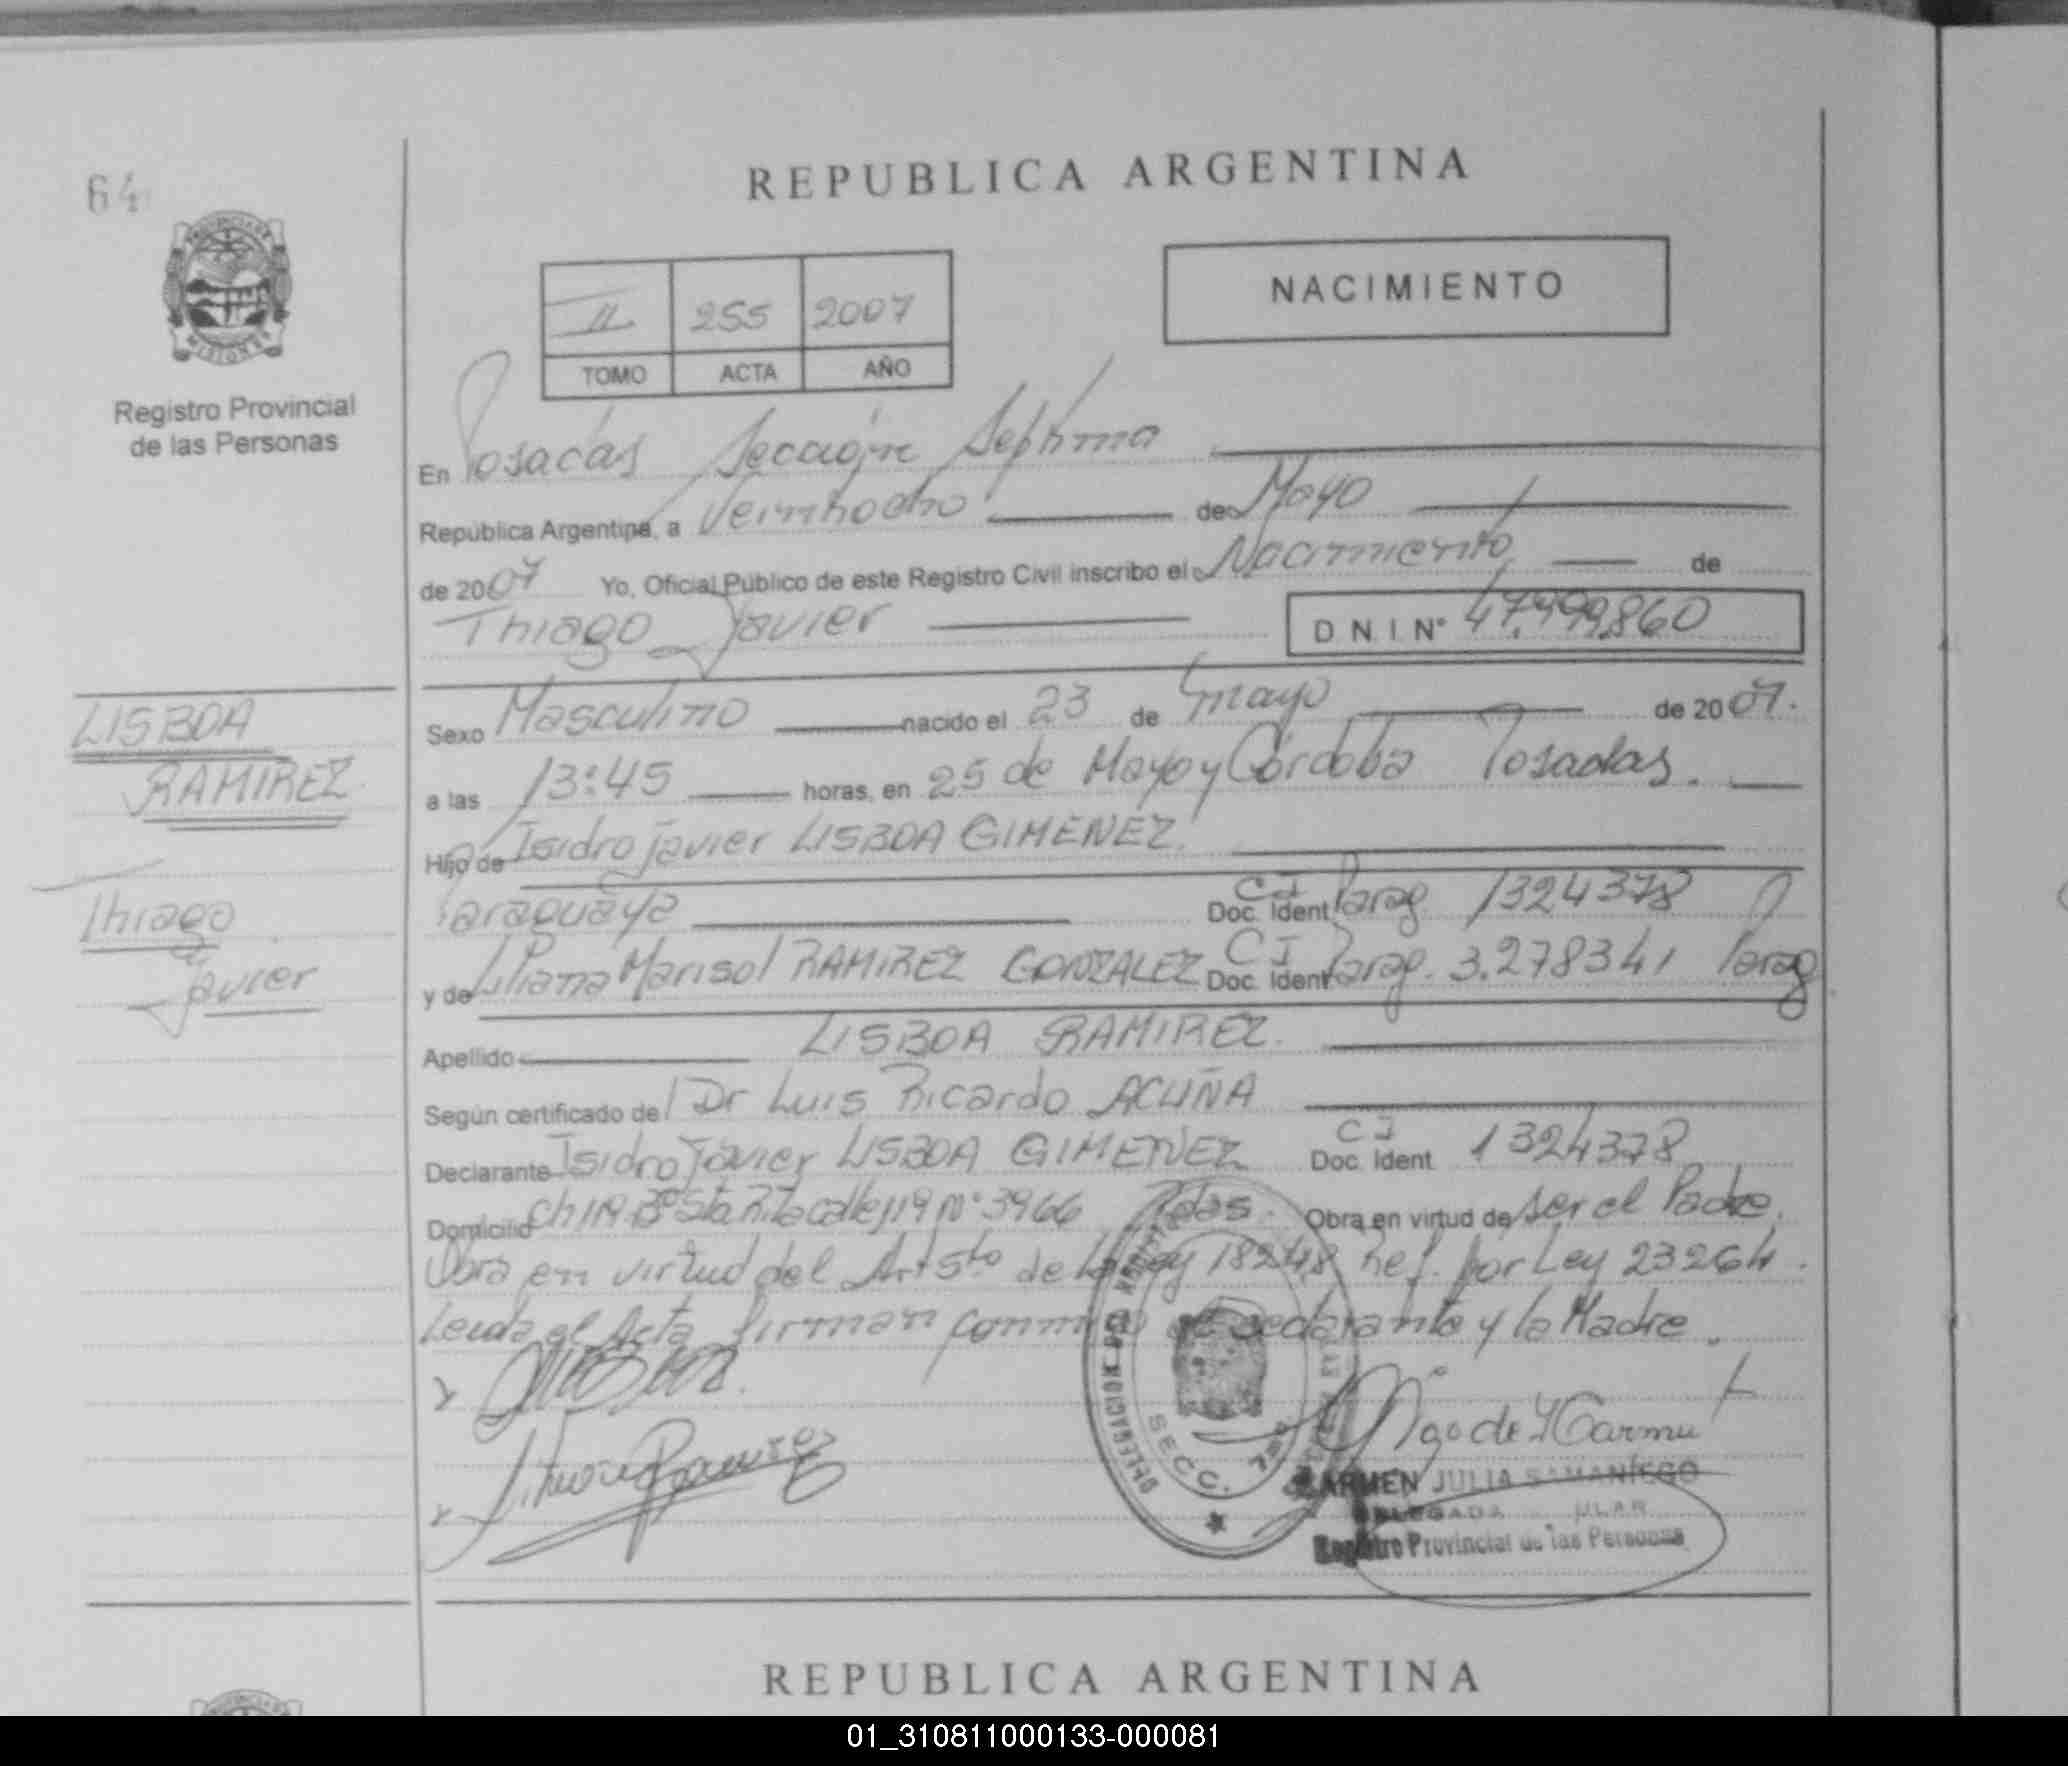 64
REPUBLICA ARGENTINA
II 255 2007
TOMO ACTA AÑO
NACIMIENTO
PROVINCIA DE MISIONES
Registro Provincial
de las Personas
En Posadas Sección Septima
República Argentina, a Veintiocho de Mayo
de 2007 Yo, Oficial Público de este Registro Civil inscribo el Nacimiento de
Thiago Javier D N. I. Nº 47.499.860
LISBOA
RAMIREZ
Thiago
Javier
Sexo Masculino nacido el 23 de mayo de 2007.
a las 13:45 horas, en 25 de Mayo y Córdoba Posadas.
Hijo de Isidro Javier LISBOA GIMENEZ.
Paraguaya CI Doc. Ident. Parag. 1324378
y de Liliana Marisol RAMIREZ GONZALEZ CI Doc. Ident. Parag. 3.278341 Parag
Apellido LISBOA RAMIREZ.
Según certificado de Dr Luis Ricardo ACUÑA
Declarante Isidro Javier LISBOA GIMENEZ CI Doc. Ident. 1324378
Domicilio Ch 119 Bº Sta Rita calle 119 Nº 3966 Pdas. Obra en virtud de ser el Padre.
Obra en virtud del Art 5to de la Ley 18248 Ref. por Ley 23264.
Leida el Acta firman conmigo el declarante y la Madre.
DELEGACION DEL REGISTRO
SECC. 7ma
CARMEN JULIA SAMANIEGO
DELEGADA
Registro Provincial de las Personas
REPUBLICA ARGENTINA
01_310811000133-000081